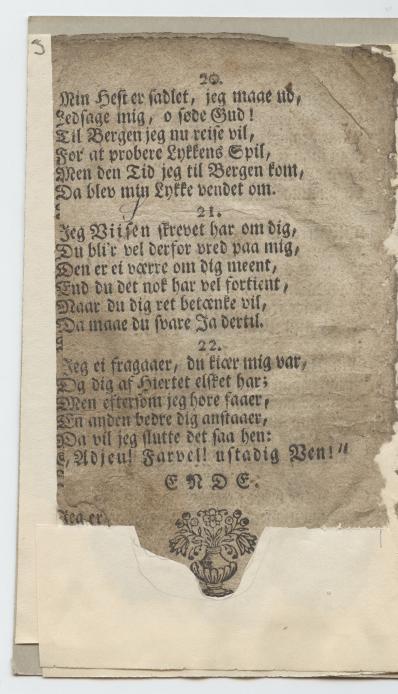 5
20.
Min Hest er sadlet, jeg maae ud,
Ledsage mig, o søde Gud!
Til Bergen jeg nu reise vil,
For at probere Lykkens Spil,
Men den Tid jeg til Bergen kom,
Da blev min Lykke vendet om.
21.
Jeg Viisen skrevet har om dig,
Du bli'r vel derfor vred paa mig,
Den er ei værre om dig meent,
End du det nok har vel fortient,
Naar du dig ret betænke vil,
Da maae du svare Ja dertil.
22.
Jeg ei fragaaer, du kiær mig var,
Og dig af Hiertet elsket har;
Men eftersom jeg høre faaer,
En anden bedre dig anstaaer,
Da vil jeg slutte det saa hen:
Adjeu! Farvel! ustadig Ven!"
ENDE.
Jeg er